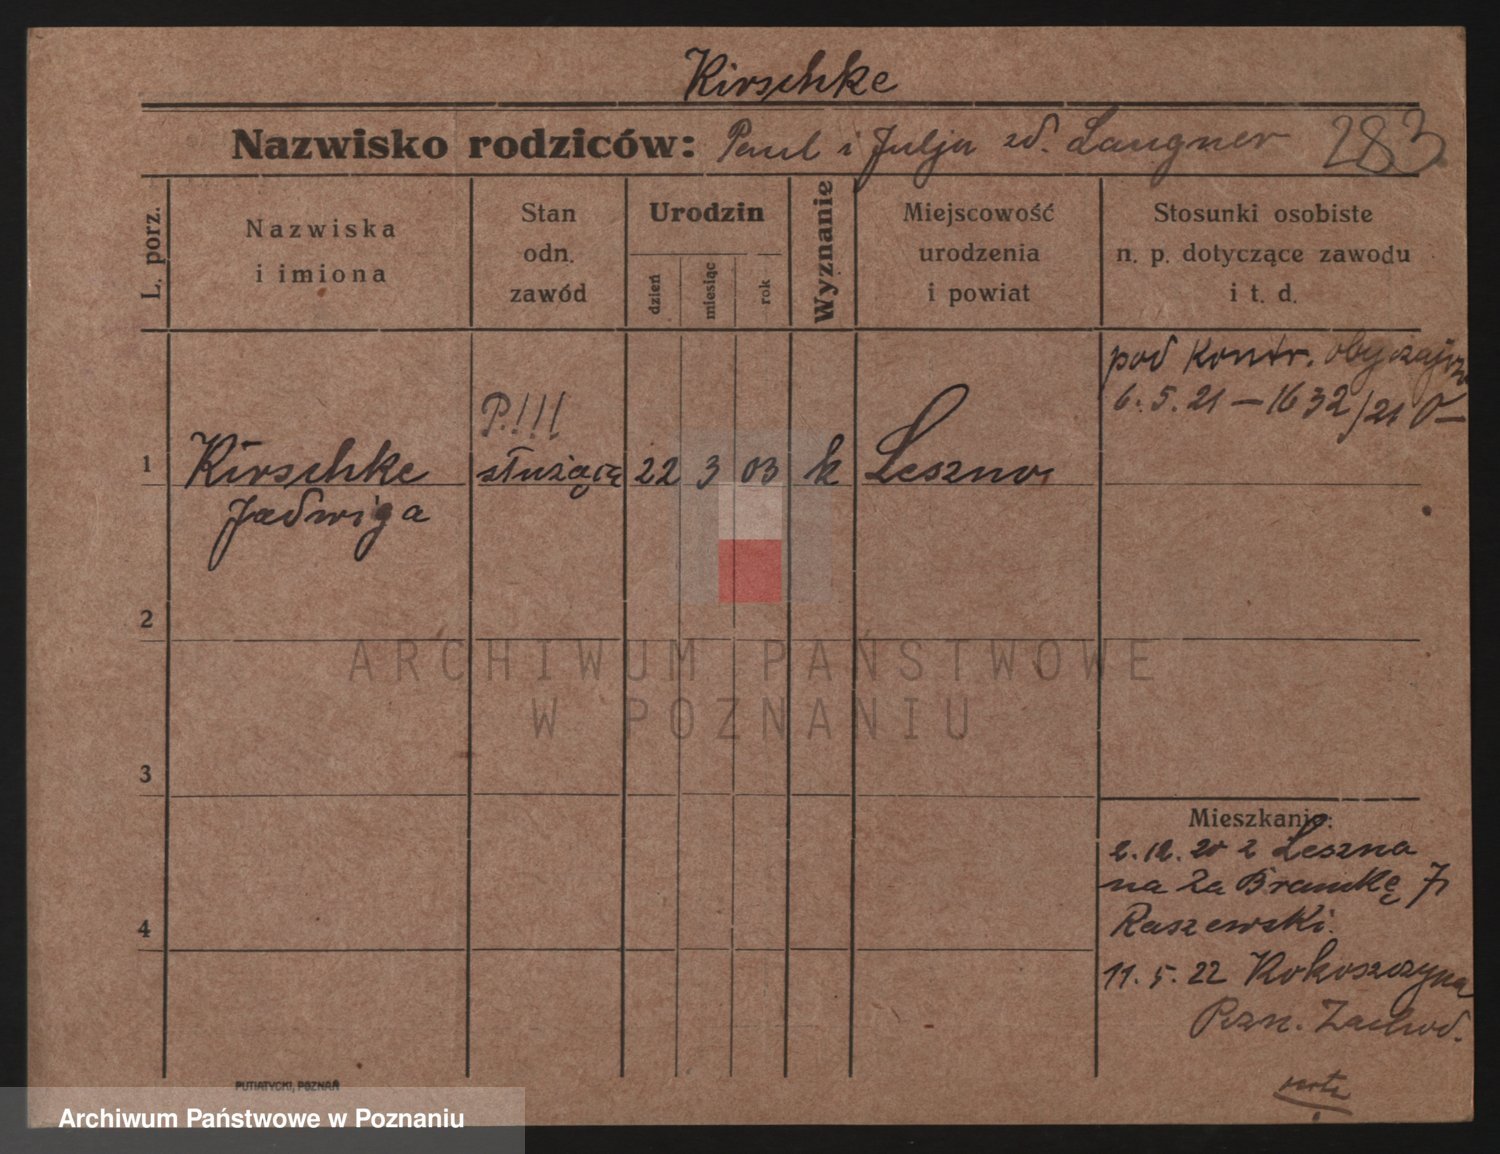 Kirschke
Nazwisko rodziców: Paul i Julja zd. Langner 283
L. porz.
Nazwiska
i imiona
Stan
odn.
zawód
Urodzin
dzień
miesiąc
rok
Wyznanie
Miejscowość
urodzenia
i powiat
Stosunki osobiste
n. p. dotyczące zawodu
i t. d.
pod kontr. obyczajow
6. 5. 21 – 1632/21
P.!!!
1 Kirschke służąca 22 3 03 k Leszno
Jadwiga
2
3
4
Mieszkanie:
2.12.20 z Leszna
na Za Bramkę 7
Raszewski.
11.5.22 Kokoszczyna
Pozn. Zachod.
PUTIATYCKI, POZNAŃ
ARCHIWUM PAŃSTWOWE
W POZNANIU
Archiwum Państwowe w Poznaniu